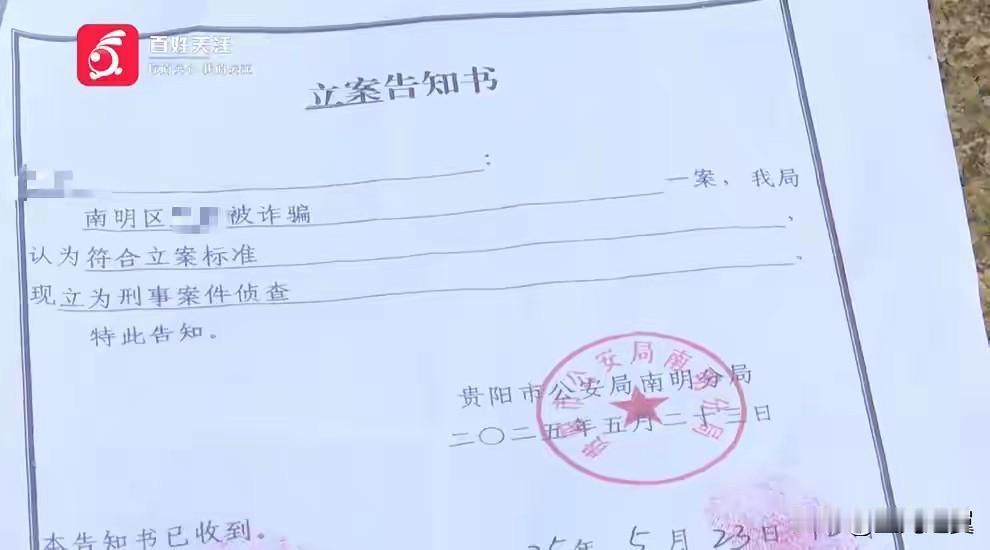 百姓关注
你的关心 我的关注
立案告知书
：
一案，我局
南明区 被诈骗
认为符合立案标准，
现立为刑事案件侦查。
特此告知。
贵阳市公安局南明分局
贵阳市公安局南明分局
二〇二五年五月二十三日
本告知书已收到。
25年5月23日